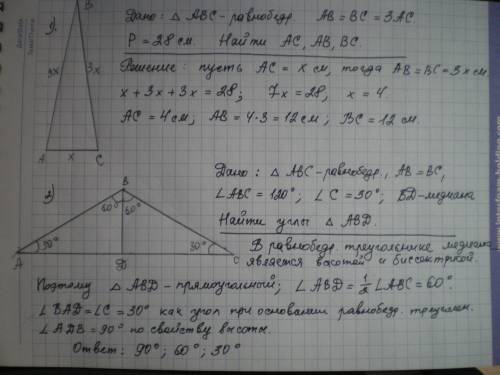 1)
B
3x
3x
A
x
C
Дано: △ ABC - равнобедр. AB = BC = 3AC.
P = 28 см. Найти AC, AB, BC.
Решение: пусть AC = x см, тогда AB = BC = 3x см.
x + 3x + 3x = 28; 7x = 28, x = 4
AC = 4 см; AB = 4·3 = 12 см; BC = 12 см.
2)
B
60° 60°
30°
30°
A
D
C
Дано: △ ABC - равнобедр., AB = BC,
∠ABC = 120°; ∠C = 30°; BD - медиана
Найти углы △ ABD.
В равнобедр. треугольнике медиана
является высотой и биссектрисой.
Поэтому △ ABD - прямоугольный; ∠ABD = 1/2 ∠ABC = 60°.
∠BAD = ∠C = 30° как угол при основании равнобедр. треугольн.
∠ADB = 90° по свойству высоты.
Ответ: 90°; 60°; 30°